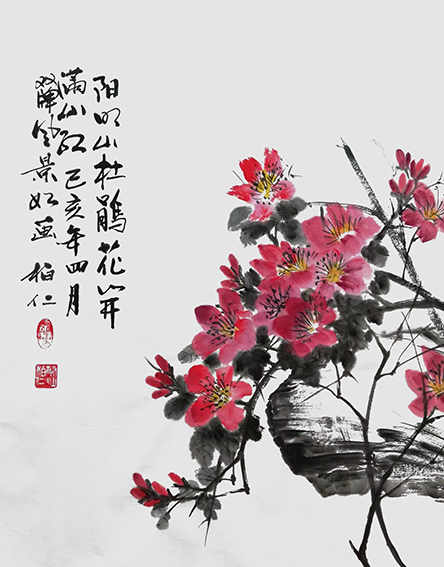 阳明山杜鹃花开
满山红己亥年四月
双牌风景如画 柏仁